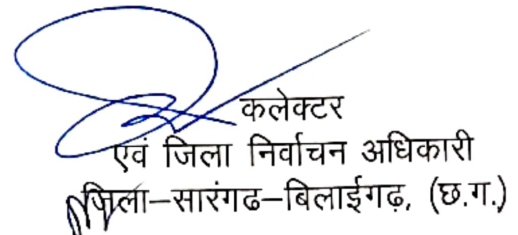 कलेक्टर
एवं जिला निर्वाचन अधिकारी
जिला–सारंगढ–बिलाईगढ़, (छ.ग.)